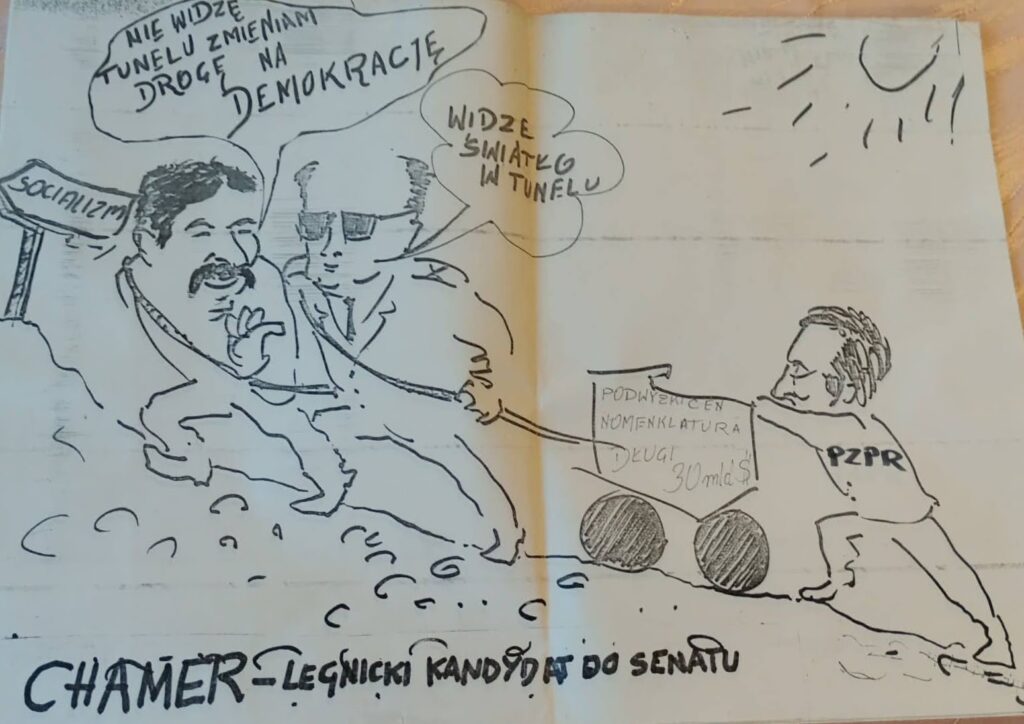 NIE WIDZĘ
TUNELU ZMIENIAM
DROGĘ NA
DEMOKRACJĘ
WIDZE
ŚWIATŁO
W TUNELU
SOCIALIZM
PODWYŻKI CEN
NOMENKLATURA
DŁUGI
30 mld $
PZPR
CHAMER – LEGNICKI KANDYDAT DO SENATU